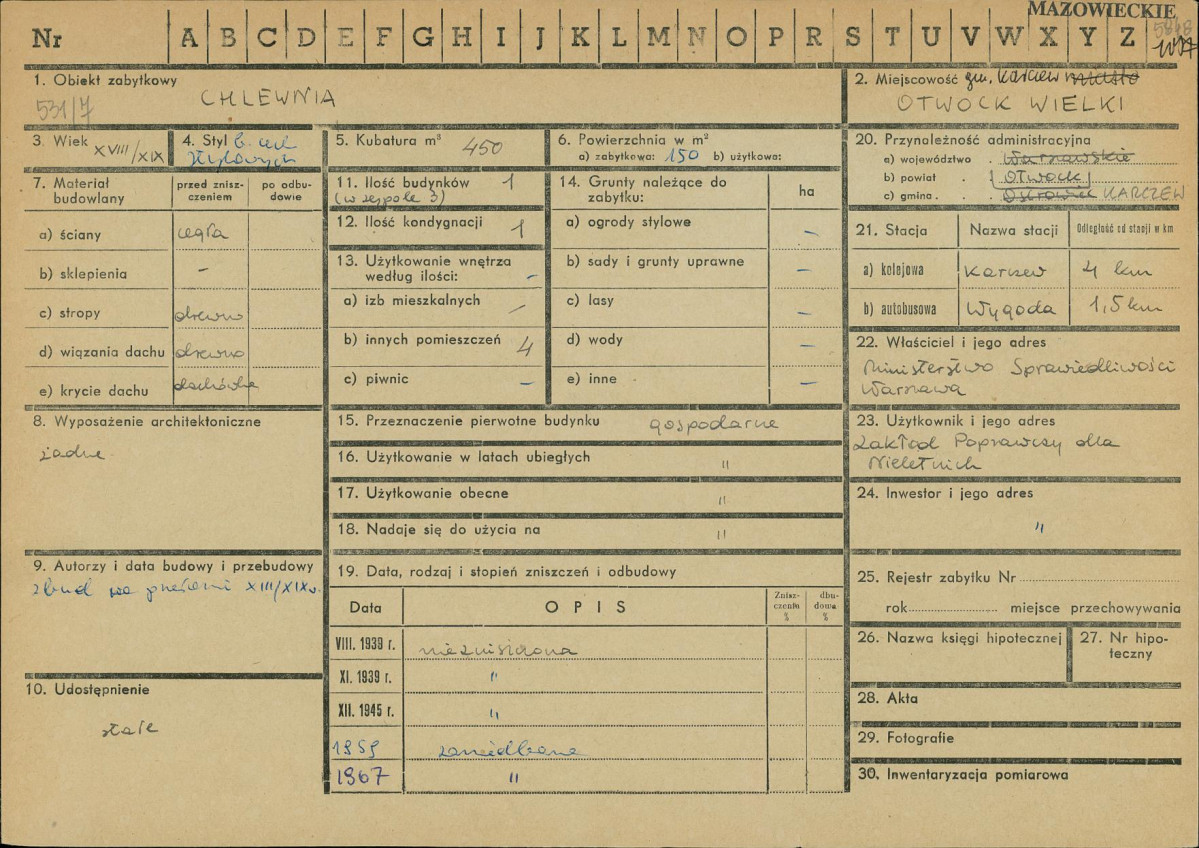 MAZOWIECKIE
Nr A B C D E F G H I J K L M N O P R S T U V W X Y Z
1. Obiekt zabytkowy
531/7
CHLEWNIA
2. Miejscowość gm. Karczew miasto
OTWOCK WIELKI
3. Wiek XVIII/XIX
4. Styl b. cech
stylowych
5. Kubatura m³ 450
6. Powierzchnia w m²
a) zabytkowa: 150 b) użytkowa:
7. Materiał budowlany
przed zniszczeniem
po odbudowie
a) ściany cegła
b) sklepienia –
c) stropy drewno
d) wiązania dachu drewno
e) krycie dachu dachówka
8. Wyposażenie architektoniczne
żadne
9. Autorzy i data budowy i przebudowy
zbud na przełomi XIII/XIX w.
10. Udostępnienie
stałe
11. Ilość budynków 1
(w zespole 3)
12. Ilość kondygnacji 1
13. Użytkowanie wnętrza
według ilości: –
a) izb mieszkalnych –
b) innych pomieszczeń 4
c) piwnic –
14. Grunty należące do
zabytku: ha
a) ogrody stylowe –
b) sady i grunty uprawne –
c) lasy –
d) wody –
e) inne –
15. Przeznaczenie pierwotne budynku gospodarne
16. Użytkowanie w latach ubiegłych "
17. Użytkowanie obecne "
18. Nadaje się do użycia na "
19. Data, rodzaj i stopień zniszczeń i odbudowy
Data OPIS Zniszczenia % dbudowa %
VIII. 1939 r. niezniszczona
XI. 1939 r. "
XII. 1945 r. "
1959 zaniedbane
1967 "
20. Przynależność administracyjna
a) województwo . Warszawskie
b) powiat . . Otwock
c) gmina . . Ostrowiec KARCZEW
21. Stacja Nazwa stacji Odległość od stacji w km
a) kolejowa Karczew 4 km
b) autobusowa Wygoda 1,5 km
22. Właściciel i jego adres
Ministerstwo Sprawiedliwości
Warszawa
23. Użytkownik i jego adres
Zakład Poprawczy dla
Nieletnich
24. Inwestor i jego adres
"
25. Rejestr zabytku Nr
rok miejsce przechowywania
26. Nazwa księgi hipotecznej
27. Nr hipoteczny
28. Akta
29. Fotografie
30. Inwentaryzacja pomiarowa